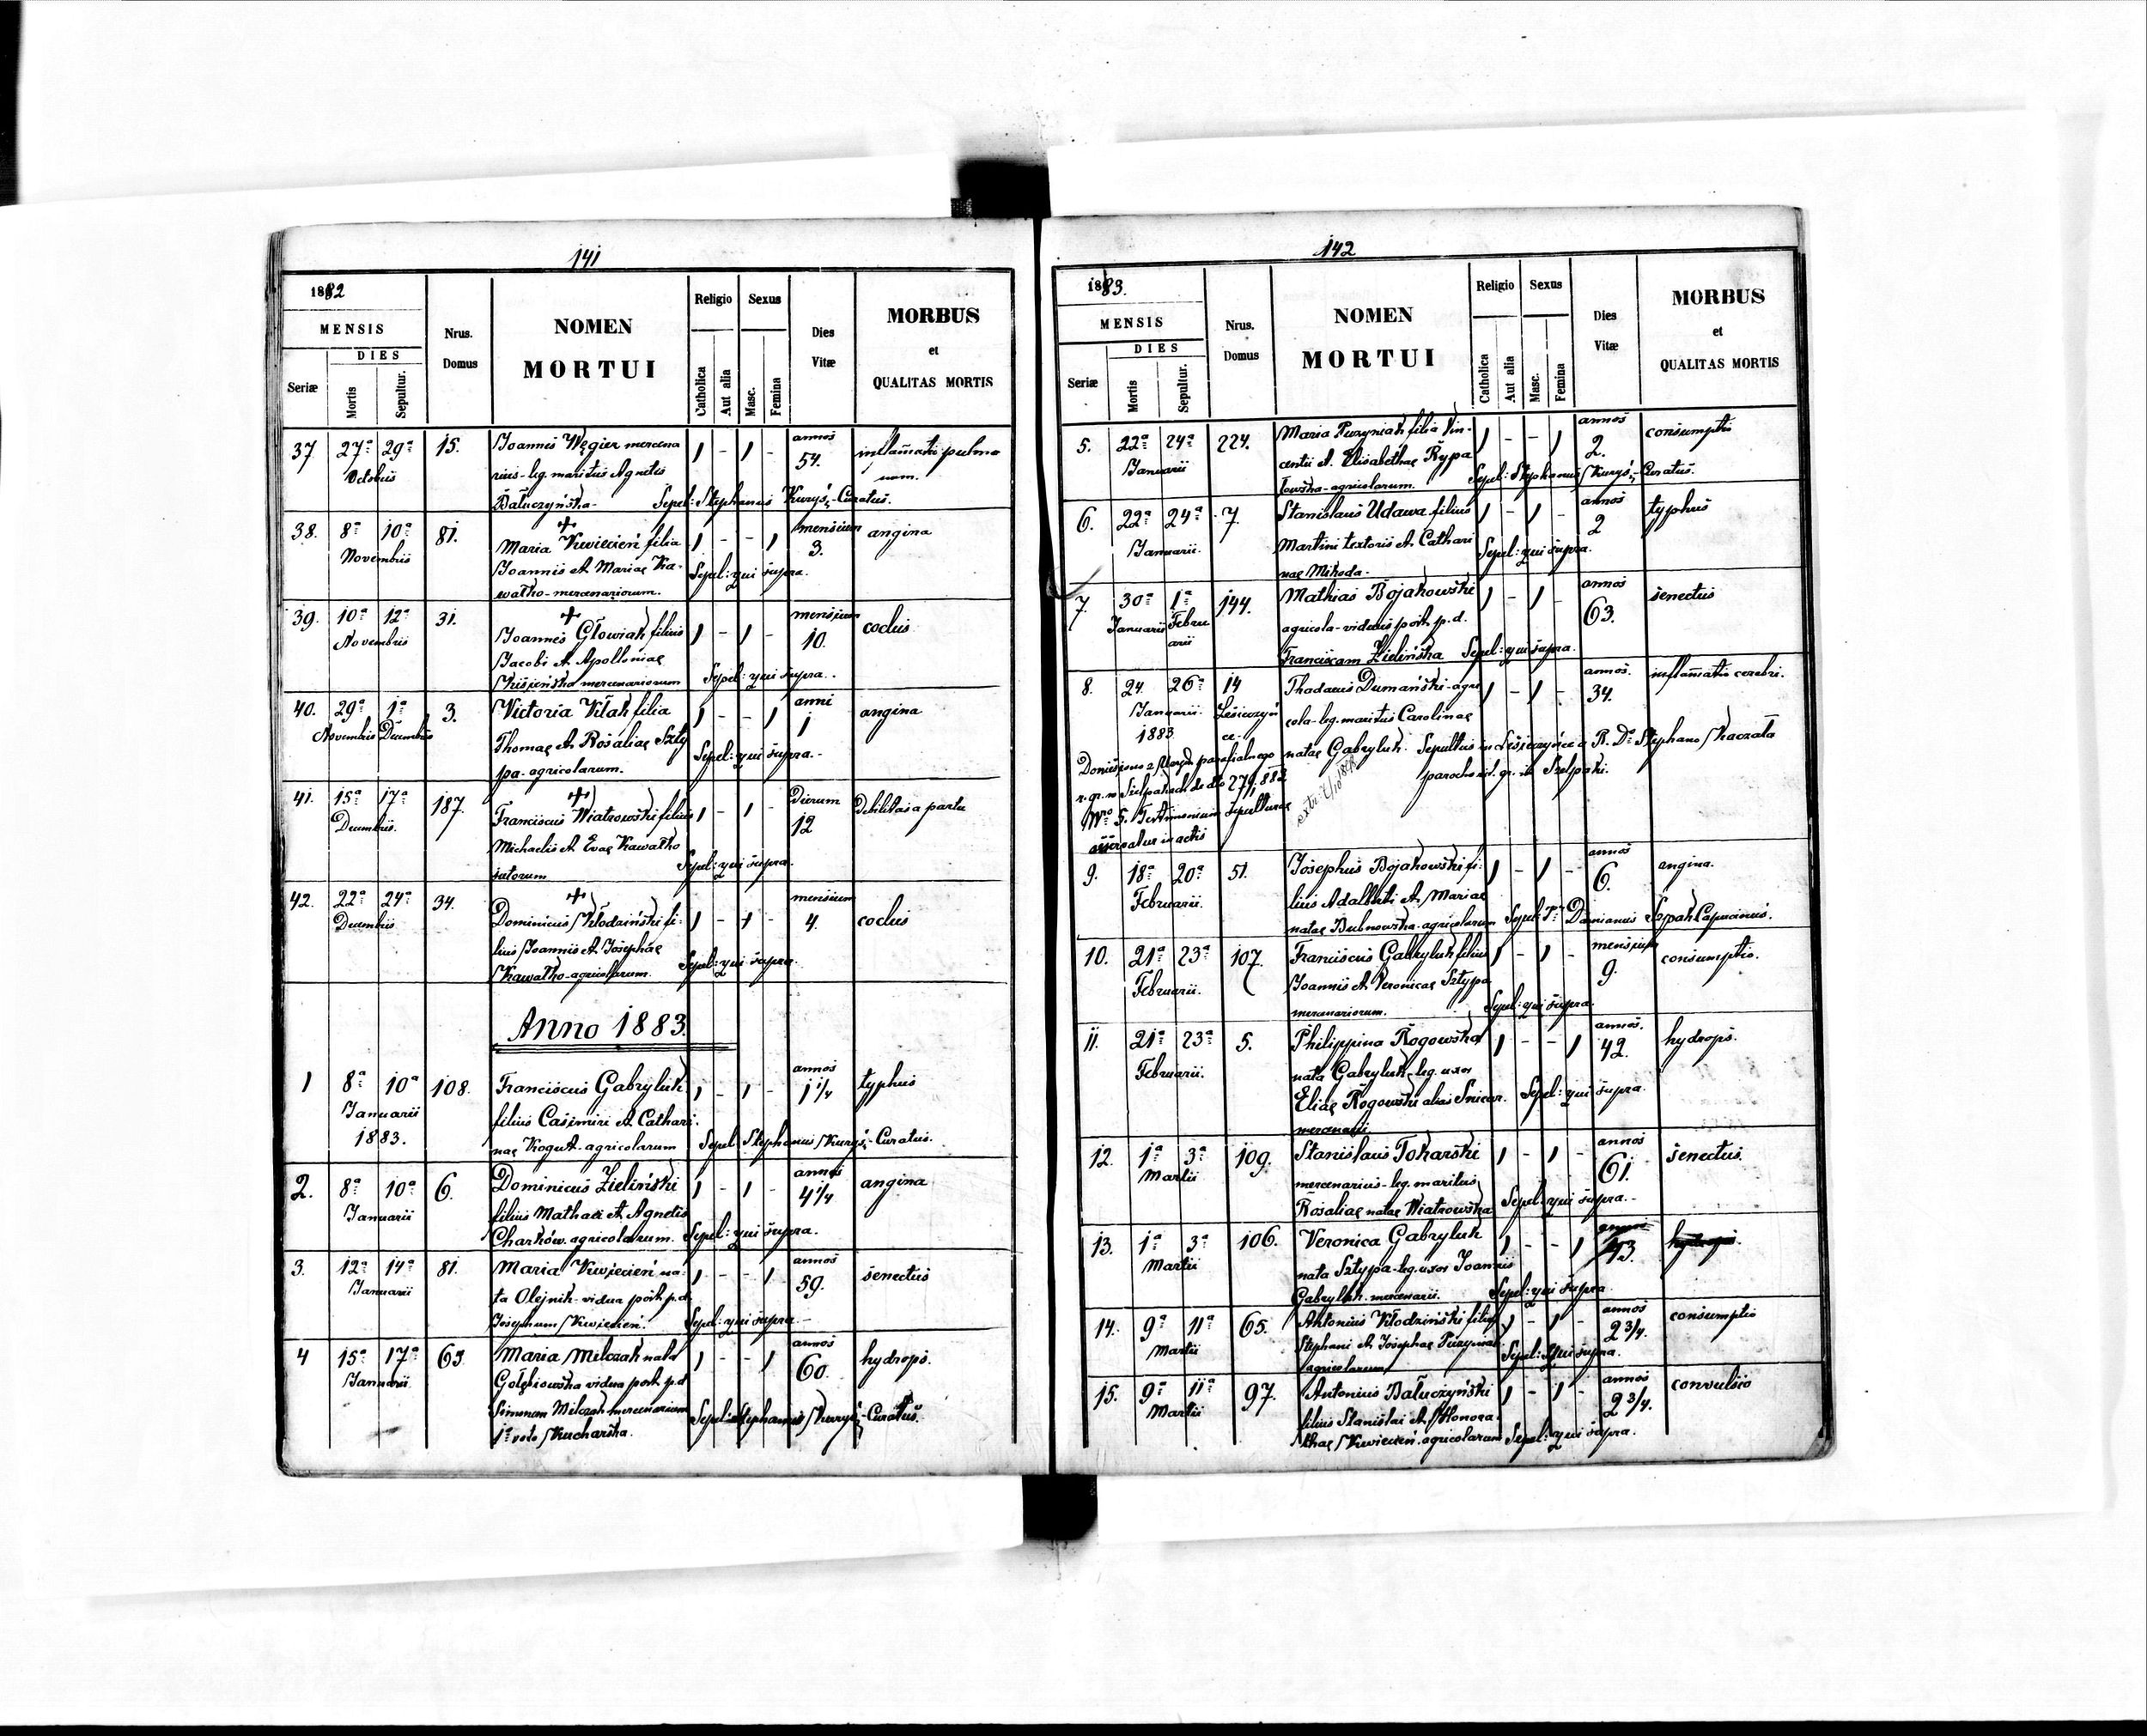 141
1882
MENSIS
DIES
Seriæ
Mortis
Sepultur.
Nrus.
Domus
NOMEN
MORTUI
Religio
Sexus
Catholica
Aut alia
Masc.
Femina
Dies
Vitæ
MORBUS
et
QUALITAS MORTIS
37 27ª 29ª 15. Joannes Węgier mercena 1 - 1 - annos 54. inflam̄atio pulmo
Octobris rius-leg. maritus Agnetis num.
Bałuczyńska- Sepel: Stephanus Kuryś,-Curatus.
38. 8ª 10ª 81. Maria Kwiecień filia 1 - - 1 mensium 3. angina
Novembris Joannis et Mariae Ka- Sepel: qui supra.
wałko-mercenariorum.
39. 10ª 12ª 31. Joannes Głowiak filius 1 - 1 - mensium 10. coclus
Novembris Jacobi et Apolloniae
mercenariorum Sepel: qui supra.
40. 29ª 1ª 3. Victoria Kłak filia 1 - - 1 anni 1 angina
Novembris Decembris Thomae et Rosaliae Szty
pa-agricolarum. Sepel: qui supra.-
41. 15ª 17ª 187. Franciscus Wiatrowski filius 1 - 1 - Dierum 12 Debilitas a partu
Decembris. Michaelis et Evae Kawałko
sutorum Sepel: qui supra.
42. 22ª 24ª 34. Dominicus Kłodziński fi- 1 - 1 - mensium 4. coclus
Decembris lius Joannis et Josephae
Kawałko-agricolarum. Sepel: qui supra.
Anno 1883.
1 8ª 10ª 108. Franciscus Gabryluk 1 - 1 - annos 1 1/4 typhus
Januarii filius Casimiri et Cathari-
1883. nae Kogut-agricolarum Sepel: Stephanus Kuryś,-Curatus.
2. 8ª 10ª 6. Dominicus Zieliński 1 - 1 - annos 4 1/4 angina
Januarii filius Mathaei et Agnetis
Charków. agricolarum. Sepel: qui supra.
3. 12ª 14ª 81. Maria Kwiecień na- 1 - - 1 annos 59. senectus
Januarii ta Olejnik-vidua post p.d.
Josephum Kwiecień. Sepel: qui supra.-
4 15ª 17ª 63. Maria Milczak nata 1 - - 1 annos 60. hydrops.
Januarii Gołębiowska vidua post p.d.
Simonem Milczak mercenarium Sepel: Stephanus Kuryś,-Curatus.
1º voto Kucharska.
142
1883.
MENSIS
DIES
Seriæ
Mortis
Sepultur.
Nrus.
Domus
NOMEN
MORTUI
Religio
Sexus
Catholica
Aut alia
Masc.
Femina
Dies
Vitæ
MORBUS
et
QUALITAS MORTIS
5. 22ª 24ª 224. Maria Puzyniak filia Vin- 1 - - 1 annos 2. consumptio
Januarii centii et Elisabethae Rypa
łowska-agricolarum. Sepel: Stephanus Kuryś,-Curatus.
6. 22ª 24ª 7. Stanislaus Udawa filius 1 - 1 - annos 2 typhus
Januarii. Martini textoris et Cathari Sepel: qui supra.
nae Mikoda.
7. 30ª 1ª 144. Mathias Bojakowski 1 - 1 - annos 63. senectus
Januarii Febru agricola-viduus post p.d.
arii Franciscam Zielińska Sepel: qui supra.
8. 24. 26ª 14 Thadaeus Dumański-agri 1 - 1 - annos. 34. inflam̄atio cerebri.
Januarii. Lesieczyń cola-leg. maritus Carolinae
1883 ce- natae Gabryluk. Sepultus in Lesieczyńce a R. Dº Stephano Kaczała
Doniesiono z Urzędu parafialnego parocho rit. gr. in Szelpaki.
r. gr. w Szelpakach de dto 27/1 883
Nro 5. Testimonium sepulturae
asservatur in actis
9. 18ª 20ª 51. Josephus Bojakowski fi- 1 - 1 - annos 6. angina.
Februarii. lius Adalberti et Mariae
natae Bubnowska-agricolarum Sepel: Pr Damianus Szpak Capucinus.
10. 21ª 23ª 107. Franciscus Gabryluk filius 1 - 1 - mensium 9. consumptio.
Februarii. Joannis et Veronicae Sztypa
mercenariorum. Sepel: qui supra.
11. 21ª 23ª 5. Philippina Rogowska 1 - - 1 annos. 42. hydrops.
Februarii. nata Gabryluk-leg. uxor
Eliae Rogowski alias Sniczar. Sepel: qui supra.
mercenarii.
12. 1ª 3ª 109. Stanislaus Tokarski 1 - 1 - annos 61. senectus.
Martii mercenarius-leg. maritus
Rosaliae natae Wiatrowska Sepel: qui supra.-
13. 1ª 3ª 106. Veronica Gabryluk 1 - - 1 annos 43. hydrops.
Martii nata Sztypa-leg. uxor Joannis
Gabryluk-mercenarii. Sepel: qui supra.
14. 9ª 11ª 65. Antonius Kłodziński filius 1 - 1 - annos 2 3/4. consumptio
Martii Stephani et Josephae Puzyniak
agricolarum Sepel: qui supra.
15. 9ª 11ª 97. Antonius Bałuczyński 1 - 1 - annos 2 3/4. convulsio
Martii filius Stanislai et Honora-
thae Kwiecień. agricolarum Sepel: qui supra.